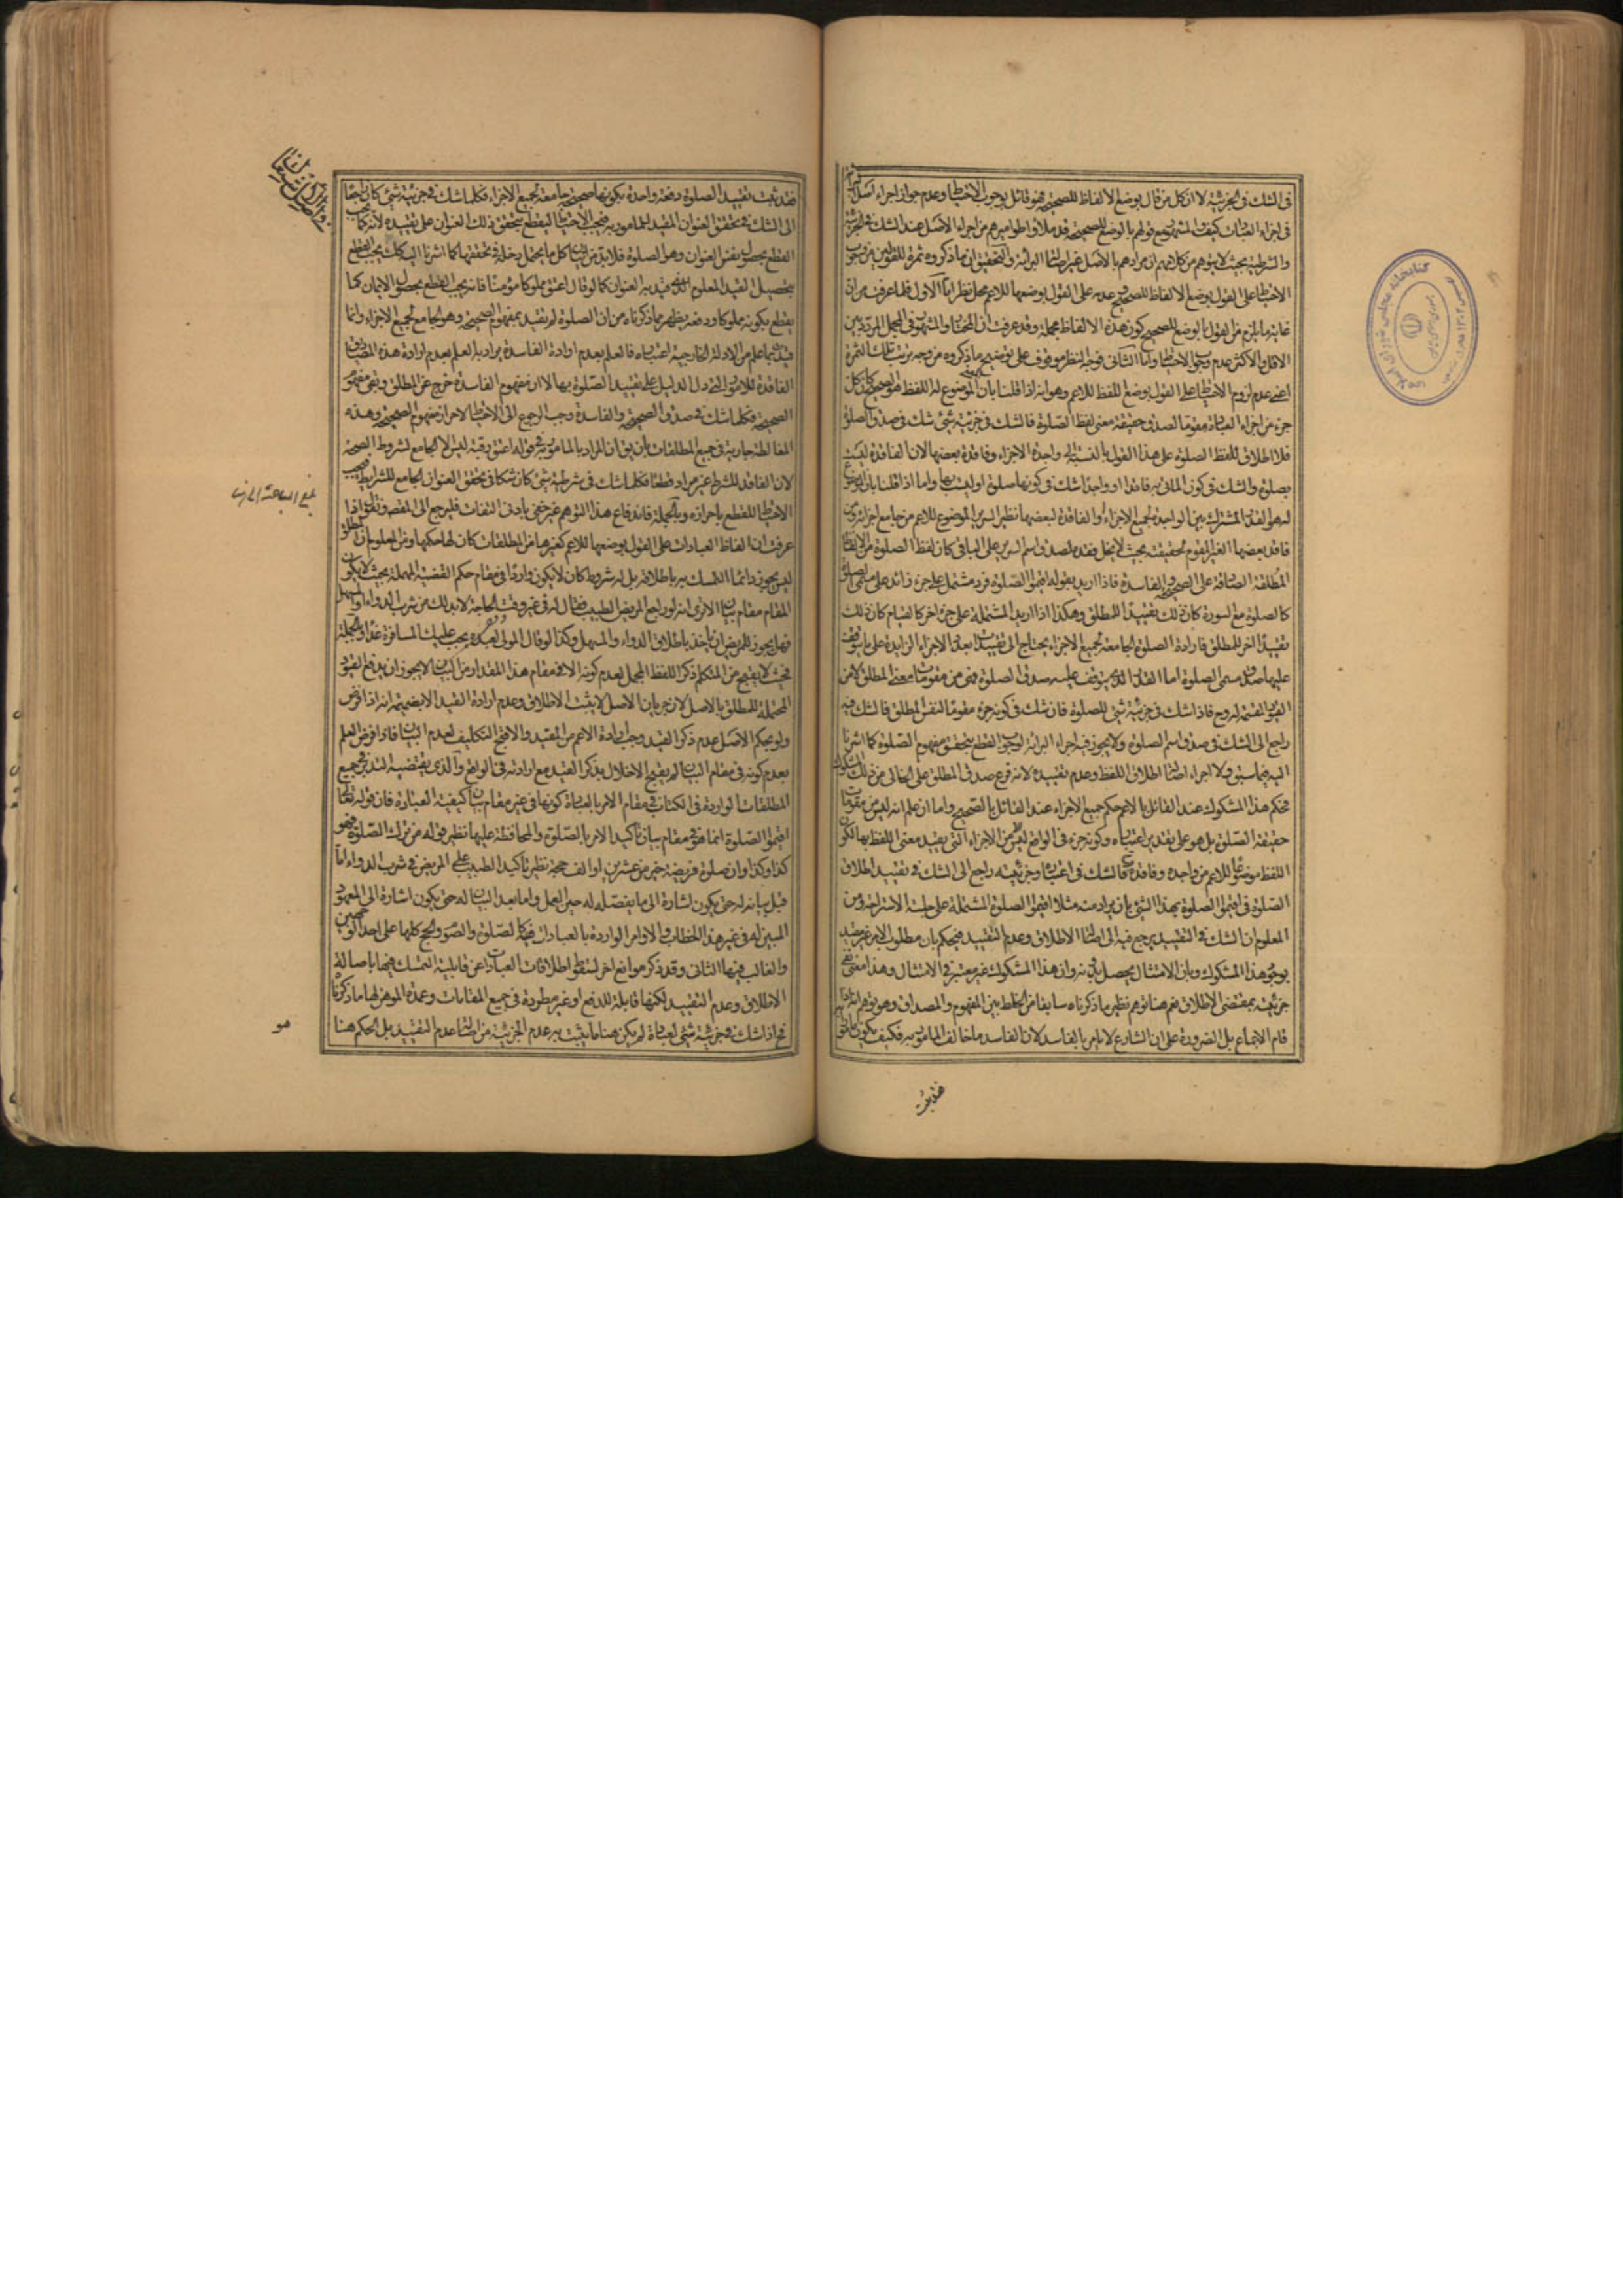 فى الشك فى الجزئية لا ان كل من قال بوضع الالفاظ للصحيحة فهو قائل بوجوب الاحتياط وعدم جواز اجراء اصل البرائة
فى اجزاء العبادات كيف والمشهور مع قولهم بالوضع للصحيحة قد ملاوا طواميرهم من اجراء الاصل عند الشك فى الجزئية
والشرطية بحيث لا يتوهم من كلامهم ان مرادهم بالاصل غير اصالة البرائة والتحقيق ان ما ذكروه ثمرة للقولين من وجوب
الاحتياط على القول بوضع الالفاظ للصحيح وعدمه على القول بوضعها للاعم محل نظر اما الاول فلما عرفت من ان
غاية ما يلزم من القول بالوضع للصحيح كون هذه الالفاظ مجملة وقد عرفت ان المختار والمشهور فى المجمل المردد بين
الاقل والاكثر عدم وجوب الاحتياط واما الثانى فوجه النظر موقوف على توضيح ما ذكروه من وجه ترتب تلك الثمرة
اعنى عدم لزوم الاحتياط على القول بوضع اللفظ للاعم وهو انه اذا قلنا بان المعنى الموضوع له اللفظ هو الصحيح كان كل
جزء من اجزاء العبادة مقوما لصدق حقيقة معنى لفظ الصلوة فالشك فى جزئية شئ شك فى صدق الصلوة
فلا اطلاق للفظ الصلوة على هذا القول بالنسبة الى واجدة الاجزاء وفاقدة بعضها لان الفاقدة ليست
بصلوة والشك فى كون المأتى به فاقدا او واجدا شك فى كونها صلوة او ليست بها واما اذا قلنا بان الموضوع
له هو القدر المشترك بين الواجدة لجميع الاجزاء والفاقدة لبعضها نظير السرير الموضوع للاعم من جامع اجزائه ومن
فاقد بعضها الغير المقوم لحقيقته بحيث لا يخل فقده لصدق اسم السرير على الباقى كان لفظ الصلوة من الالفاظ
المطلقة الصادقة على الصحيحة والفاسدة فاذا اريد بقوله اقيموا الصلوة فرد مشتمل على جزء زائد على مسمى الصلوة
كالصلوة مع السورة كان ذلك تقييدا للمطلق وهكذا اذا اريد المشتملة على جزء اخر كالقيام كان ذلك
تقييدا اخر للمطلق فارادة الصلوة الجامعة لجميع الاجزاء يحتاج الى تقييدات بعدد الاجزاء الزايدة على ما يتوقف
عليها صدق مسمى الصلوة اما القدر الذى يتوقف عليه صدق الصلوة فهى من مقومات معنى المطلق لا من
القيود المقسمة له وح فاذا شك فى جزئية شئ للصلوة فان شك فى كونه جزء مقوما لنفس المطلق فالشك فيه
راجع الى الشك فى صدق اسم الصلوة ولا يجوز فيه اجراء البرائة لوجوب القطع بتحقق مفهوم الصلوة كما اشرنا
اليه فيما سبق ولا اجراء اصالة اطلاق اللفظ وعدم تقييده لانه فرع صدق المطلق على الخالى من ذلك المشكوك
فحكم هذا المشكوك عند القائل بالاعم حكم جميع الاجزاء عند القائل بالصحيح واما ان علم انه ليس من مقومات
حقيقة الصلوة بل هو على تقدير اعتباره وكونه جزء فى الواقع ليس الا من الاجزاء التى يقيد معنى اللفظ بها لكون
اللفظ موضوعا للاعم من واجده وفاقده فح فالشك فى اعتباره وجزئيته راجع الى الشك فى تقييد اطلاق
الصلوة فى اقيموا الصلوة بهذا الشئ بان يراد منه مثلا اقيموا الصلوة المشتملة على جلسة الاستراحة ومن
المعلوم ان الشك فى التقييد يرجع فيه الى اصالة الاطلاق وعدم التقييد فيحكم بان مطلوب الامر غير مقيد
بوجود هذا المشكوك وبان الامتثال يحصل بدونه وان هذا المشكوك غير معتبر فى الامتثال وهذا معنى نفى
جزئيته بمقتضى الاطلاق نعم هنا توهم نظير ما ذكرناه سابقا من الخلط بين المفهوم والمصداق وهو توهم انه اذا
قام الاجماع بل الضرورة على ان الشارع لا يامر بالفاسدة لان الفاسد ما خالف المامور به فكيف يكون مامورا به
فقد ثبت
فقد ثبت تقييد الصلوة دفعة واحدة بكونها صحيحة جامعة لجميع الاجزاء فكلما شك فى جزئية شئ كان راجعا
الى الشك فى تحقق العنوان المقيد للمامور به فيجب الاحتياط ليقطع بتحقق ذلك العنوان على تقييده لانه كما يجب
القطع بحصول نفس العنوان وهو الصلوة فلا بد من اتيان كل ما يحتمل دخله فى تحققها كما اشرنا اليه كذلك يجب القطع
بتحصيل القيد المعلوم الذى قيد به العنوان كما لو قال اعتق مملوكا مؤمنا فانه يجب القطع بحصول الايمان كما
يقطع بكونه مملوكا ودفعه يظهر مما ذكرناه من ان الصلوة لم تقيد بمفهوم الصحيحة وهو الجامع لجميع الاجزاء وانما
قيدت بما علم من الادلة الخارجية اعتباره فالعلم بعدم ارادة الفاسدة يراد به العلم بعدم ارادة هذه المصاديق
الفاقدة للامور التى دل الدليل على تقييد الصلوة بها لا ان مفهوم الفاسدة خرج عن المطلق وبقى مفهوم
الصحيحة فكلما شك فى صدق الصحيحة والفاسدة وجب الرجوع الى الاحتياط لاحراز مفهوم الصحيحة وهذه
المغالطة جارية فى جميع المطلقات بان يق ان المراد بالمامور به فى قوله اعتق رقبة ليس الا الجامع لشروط الصحة
لان الفاقد للشرط غير مراد قطعا فكلما شك فى شرطية شئ كان شكا فى تحقق العنوان الجامع للشرايط فيجب
الاحتياط للقطع باحرازه وبالجملة فاندفاع هذا التوهم غير خفى بادنى التفات فليرجع الى المقصود ونقول اذا
عرفت ان الفاظ العبادات على القول بوضعها للاعم كغيرها من المطلقات كان لها حكمها ومن المعلوم ان المطلق
ليس يجوز دائما التمسك به باطلاقه بل له شروط كان لا يكون واردا فى مقام حكم القضية المهملة بحيث لا يكون
المقام مقام بيان الا ترى انه لو راجع المريض الطبيب فقال له فى غير وقت الحاجة لا بد لك من شرب الدواء او المسهل
فهل يجوز للمريض ان ياخذ باطلاق الدواء والمسهل وكذا لو قال المولى لعبده يجب عليك المسافرة غدا وبالجملة
فحيث لا يقبح من المتكلم ذكر اللفظ المجمل لعدم كونه الا فى مقام هذا المقدار من البيان لا يجوز ان يدفع القيود
المحتملة للمطلق بالاصل لان جريان الاصل لا يثبت الاطلاق وعدم ارادة القيد الا بضميمة انه اذا فرض
ولو بحكم الاصل عدم ذكر القيد وجب ارادة الاعم من المقيد والا قبح التكليف لعدم البيان فاذا فرض العلم
بعدم كونه فى مقام البيان لم يقبح الاخلال بذكر القيد مع ارادته فى الواقع والذى يقتضيه التدبر فى جميع
المطلقات الواردة فى الكتاب فى مقام الامر بالعبادة كونها فى غير مقام بيان كيفية العبادة فان قوله تعالى
اقيموا الصلوة انما هو فى مقام بيان تأكيد الامر بالصلوة والمحافظة عليها نظير قوله من ترك الصلوة فهو
كذا وكذا وان صلوة فريضة خير من عشرين او الف حجة نظير تأكيد الطبيب على المريض فى شرب الدواء اما
قبل بيانه له حتى يكون اشارة الى ما يفصله له حين العمل واما بعد البيان له حتى يكون اشارة الى المعهود
المبين له فى غير هذا الخطاب والاوامر الواردة بالعبادات فيه كالصلوة والصوم والحج كلها على احد الوجهين
والغالب فيها الثانى وقد ذكر موانع اخر لسقوط اطلاقات العبادات عن قابلية التمسك فيها باصالة
الاطلاق وعدم التقييد لكنها قابلة للدفع او غير مطردة فى جميع المقامات وعمدة الموهن لها ما ذكرناه
فح اذا شك فى جزئية شئ لعبادة لم يكن هنا ما يثبت به عدم الجزئية من اصالة عدم التقييد بل الحكم هنا
هو